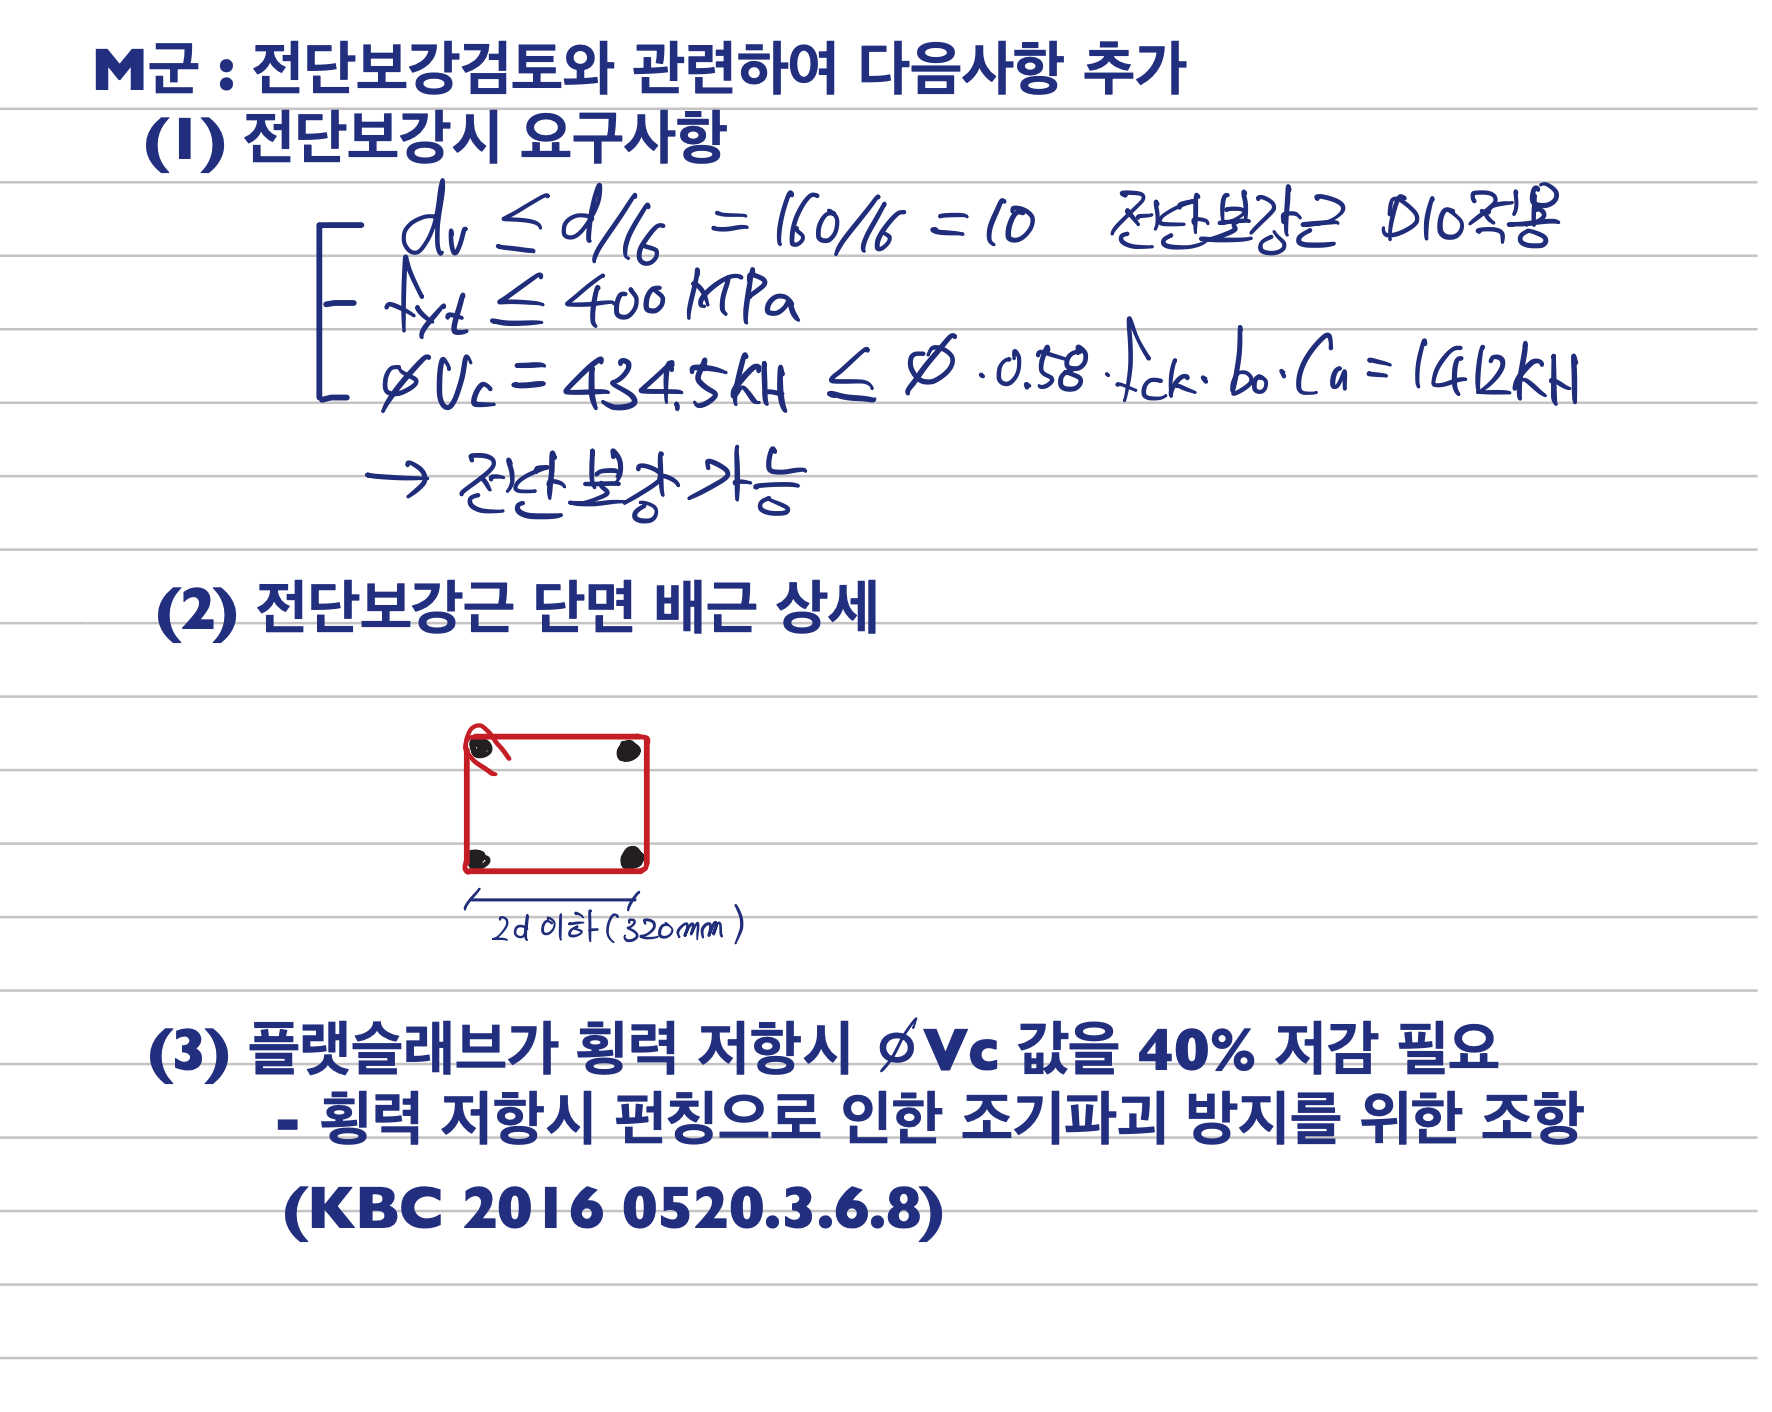 M군 : 전단보강검토와 관련하여 다음사항 추가
(1) 전단보강시 요구사항
dv ≤ d/16 = 160/16 = 10 전단보강근 D10적용
fyt ≤ 400 MPa
øVc = 434.5kN ≤ ø·0.58·fck·bo·Ca = 1412kN
→ 전단보강 가능
(2) 전단보강근 단면 배근 상세
2d 이하 (320mm)
(3) 플랫슬래브가 횡력 저항시 øVc 값을 40% 저감 필요
- 횡력 저항시 펀칭으로 인한 조기파괴 방지를 위한 조항
(KBC 2016 0520.3.6.8)